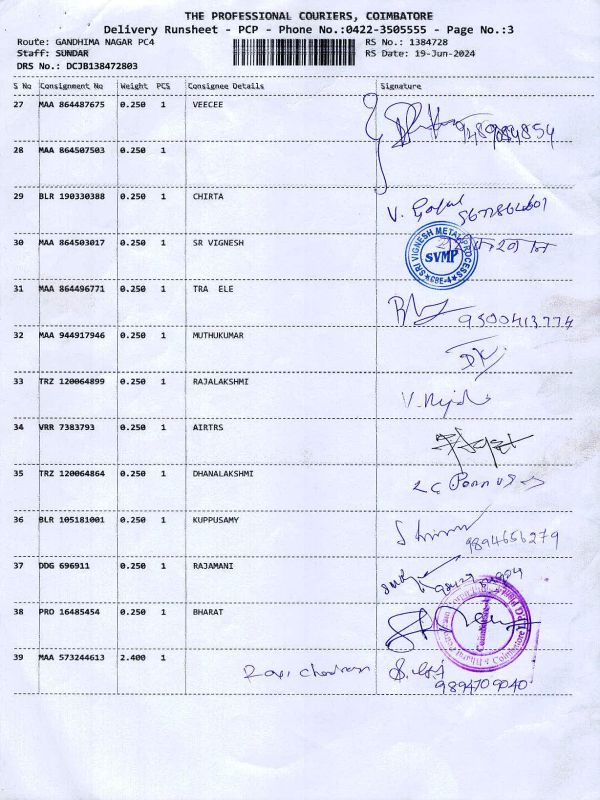 THE PROFESSIONAL COURIERS, COIMBATORE
Delivery Runsheet - PCP - Phone No.:0422-3505555 - Page No.:3
Route: GANDHIMA NAGAR PC4 RS No.: 1384728
Staff: SUNDAR RS Date: 19-Jun-2024
DRS No.: DCJB138472803
S No Consignment No Weight PCS Consignee Details Signature
27 MAA 864487675 0.250 1 VEECEE
28 MAA 864507503 0.250 1
29 BLR 190330388 0.250 1 CHIRTA V. Gopal
30 MAA 864503017 0.250 1 SR VIGNESH
SRI VIGNESH METAL PROCESS
SVMP
CBE-4
31 MAA 864496771 0.250 1 TRA ELE 9500413774
32 MAA 944917946 0.250 1 MUTHUKUMAR
33 TRZ 120064899 0.250 1 RAJALAKSHMI
34 VRR 7383793 0.250 1 AIRTRS
35 TRZ 120064864 0.250 1 DHANALAKSHMI
36 BLR 105181001 0.250 1 KUPPUSAMY 9894656279
37 DDG 696911 0.250 1 RAJAMANI
38 PRO 16485454 0.250 1 BHARAT
Coimbatore
39 MAA 573244613 2.400 1 Ravi chandran
9894709040